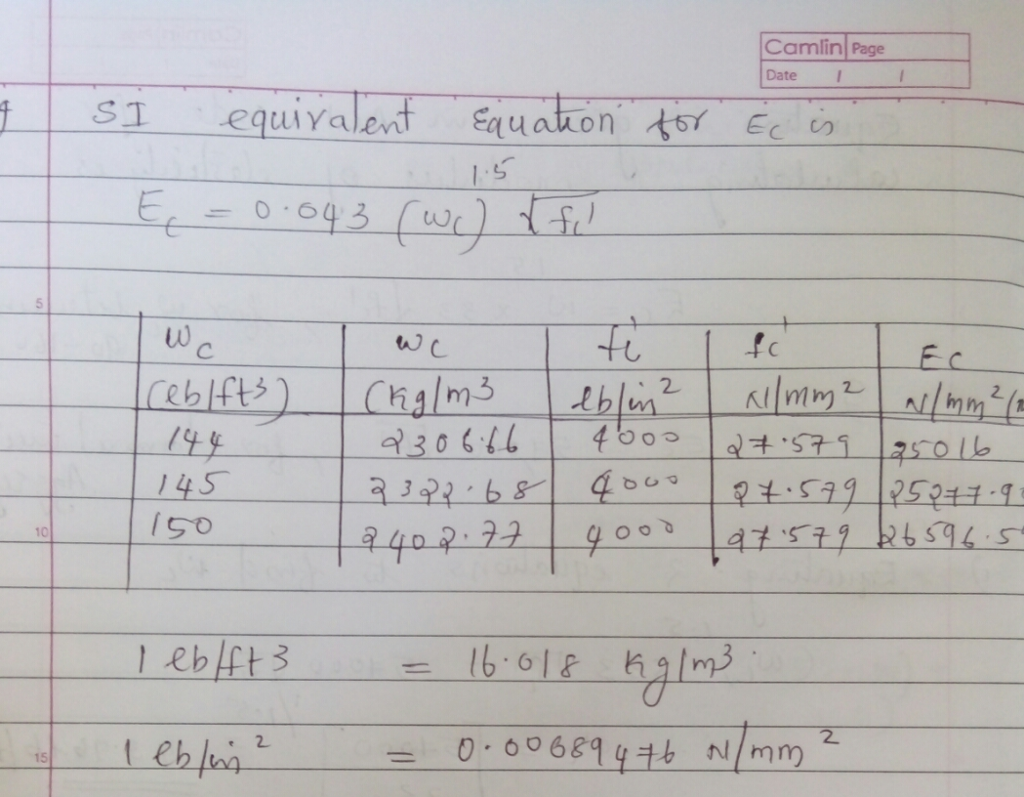 Camlin Page
Date / /
SI equivalent Equation for Ec is
Ec = 0.043 (wc)^1.5 √fc'
5
Wc wc fc' fc' Ec
(lb/ft3) (Kg/m3 lb/in2 N/mm2 N/mm2
144 2306.66 4000 27.579 25016
145 2322.68 4000 27.579 25277.9
10
150 2402.77 4000 27.579 26596.5
1 lb/ft3 = 16.018 Kg/m3
15
1 lb/in2 = 0.00689476 N/mm2